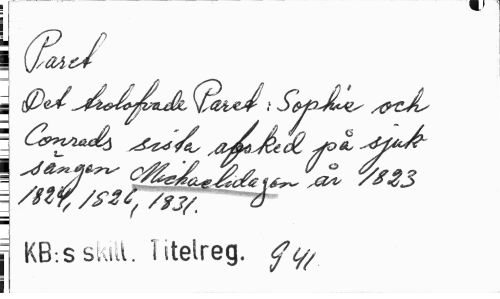 Paret
Det trolofvade Paret: Sophie och
Conrads sista afsked på sjuk
sängen Michaelidagen år 1823
1824, 1826, 1831.
KB:s skill. Titelreg. G 41.